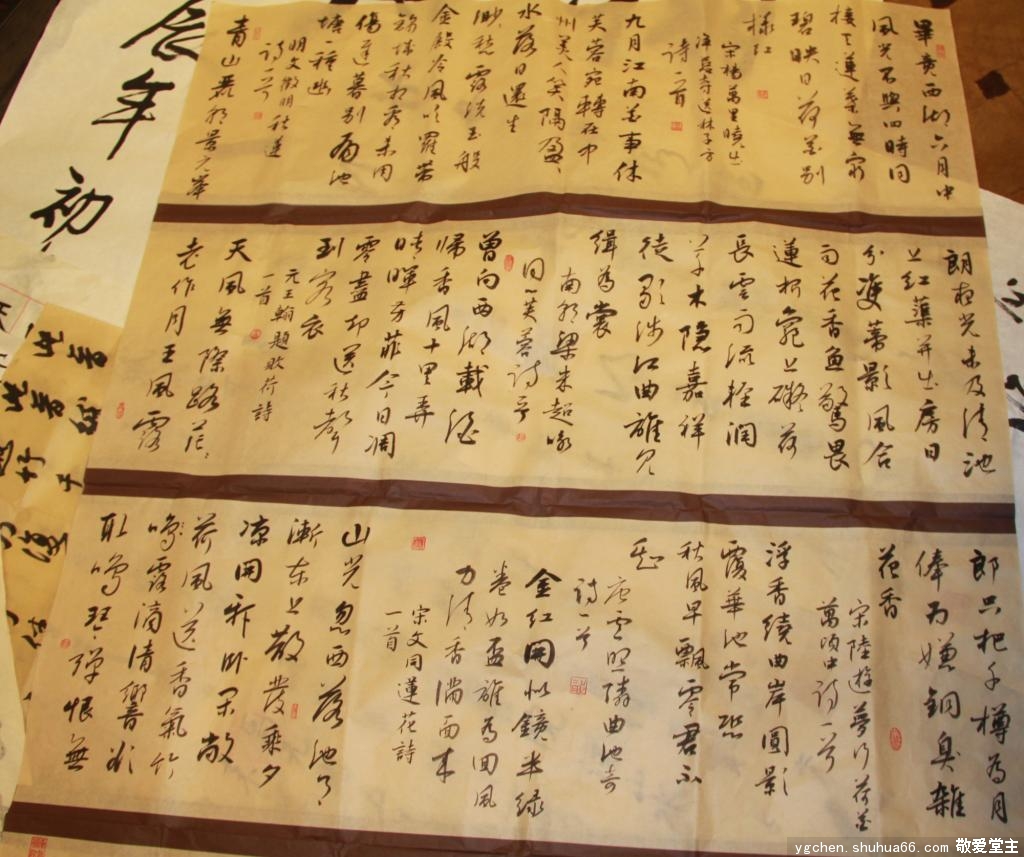 畢竟西湖六月中
風光不與四時同
接天蓮葉無窮
碧映日荷花別
樣紅
宋楊萬里曉出
淨慈寺送林子方
詩一首
九月江南花事休
芙蓉宛轉在中
州美人笑隔盈
水落日還生
渺愁露洗玉盤
金殿冷風吹羅
錦城秋相看未用
傷遲暮別有池
塘一種幽
明文徵明秋蓮
詩一首
朗夜光未及清池
上紅蕖并出房日
分雙蒂影風合
兩花香魚驚畏
蓮折龜上礙荷
長雲雨流輕潤
草木隱嘉祥
徒歌涉江曲誰見
緝為裳
南朝梁朱超詠
同心芙蓉詩一首
曾向西湖載酒
歸香風十里弄
晴暉芳菲今日凋
零盡却送秋聲
到客衣
元王翰題敗荷詩
一首
天風無際路茫
老作月王風露
郎只把千樽為月
俸為嫌銅臭雜
花香
宋陸游夢行荷花
萬頃中詩一首
浮香繞曲岸圓影
覆華池常恐
秋風早飄零君不
知
唐盧照鄰曲池荷
詩一首
金紅開似鏡半綠
卷如盃誰為回風
力清香滿面來
宋文同蓮花詩
一首
山光忽西落池月
漸東上散髮乘夕
涼開軒卧閑敞
荷風送香氣竹
露滴清響欲
取鳴琴彈恨無
念年初
ygchen.shuhua66.com 敬爱堂主